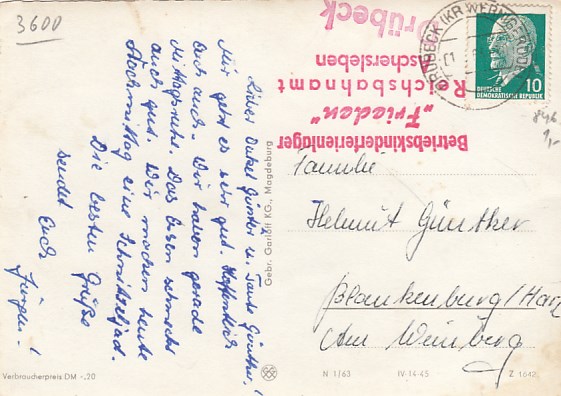 3600
Lieber Onkel Günter u. Tante Günther!
Mir geht es sehr gut. Hoffentlich
Euch auch. Wir haben gerade
Mittagsruhe. Das Essen schmeckt
auch gut. Wir machen heute
Nachmittag eine Schnitzeljad.
Die besten Grüße
sendet Euch
Jürgen!
Verbraucherpreis DM -,20
Gebr. Garloff KG., Magdeburg
Drübeck
Betriebskinderferienlager
„Frieden"
Reichsbahnamt
Aschersleben
DRÜBECK (KR WERNIGERODE)
DEUTSCHE
DEMOKRATISCHE REPUBLIK
10
1,-
Familie
Helmut Günther
Blankenburg/Harz
Am Weinberg
N 1/63 IV-14-45 Z 1642